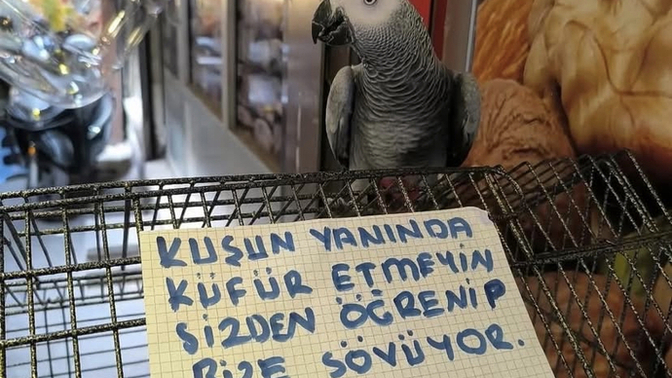 KUŞUN YANINDA
KÜFÜR ETMEYİN
SİZDEN ÖĞRENİP
BİZE SÖVÜYOR.